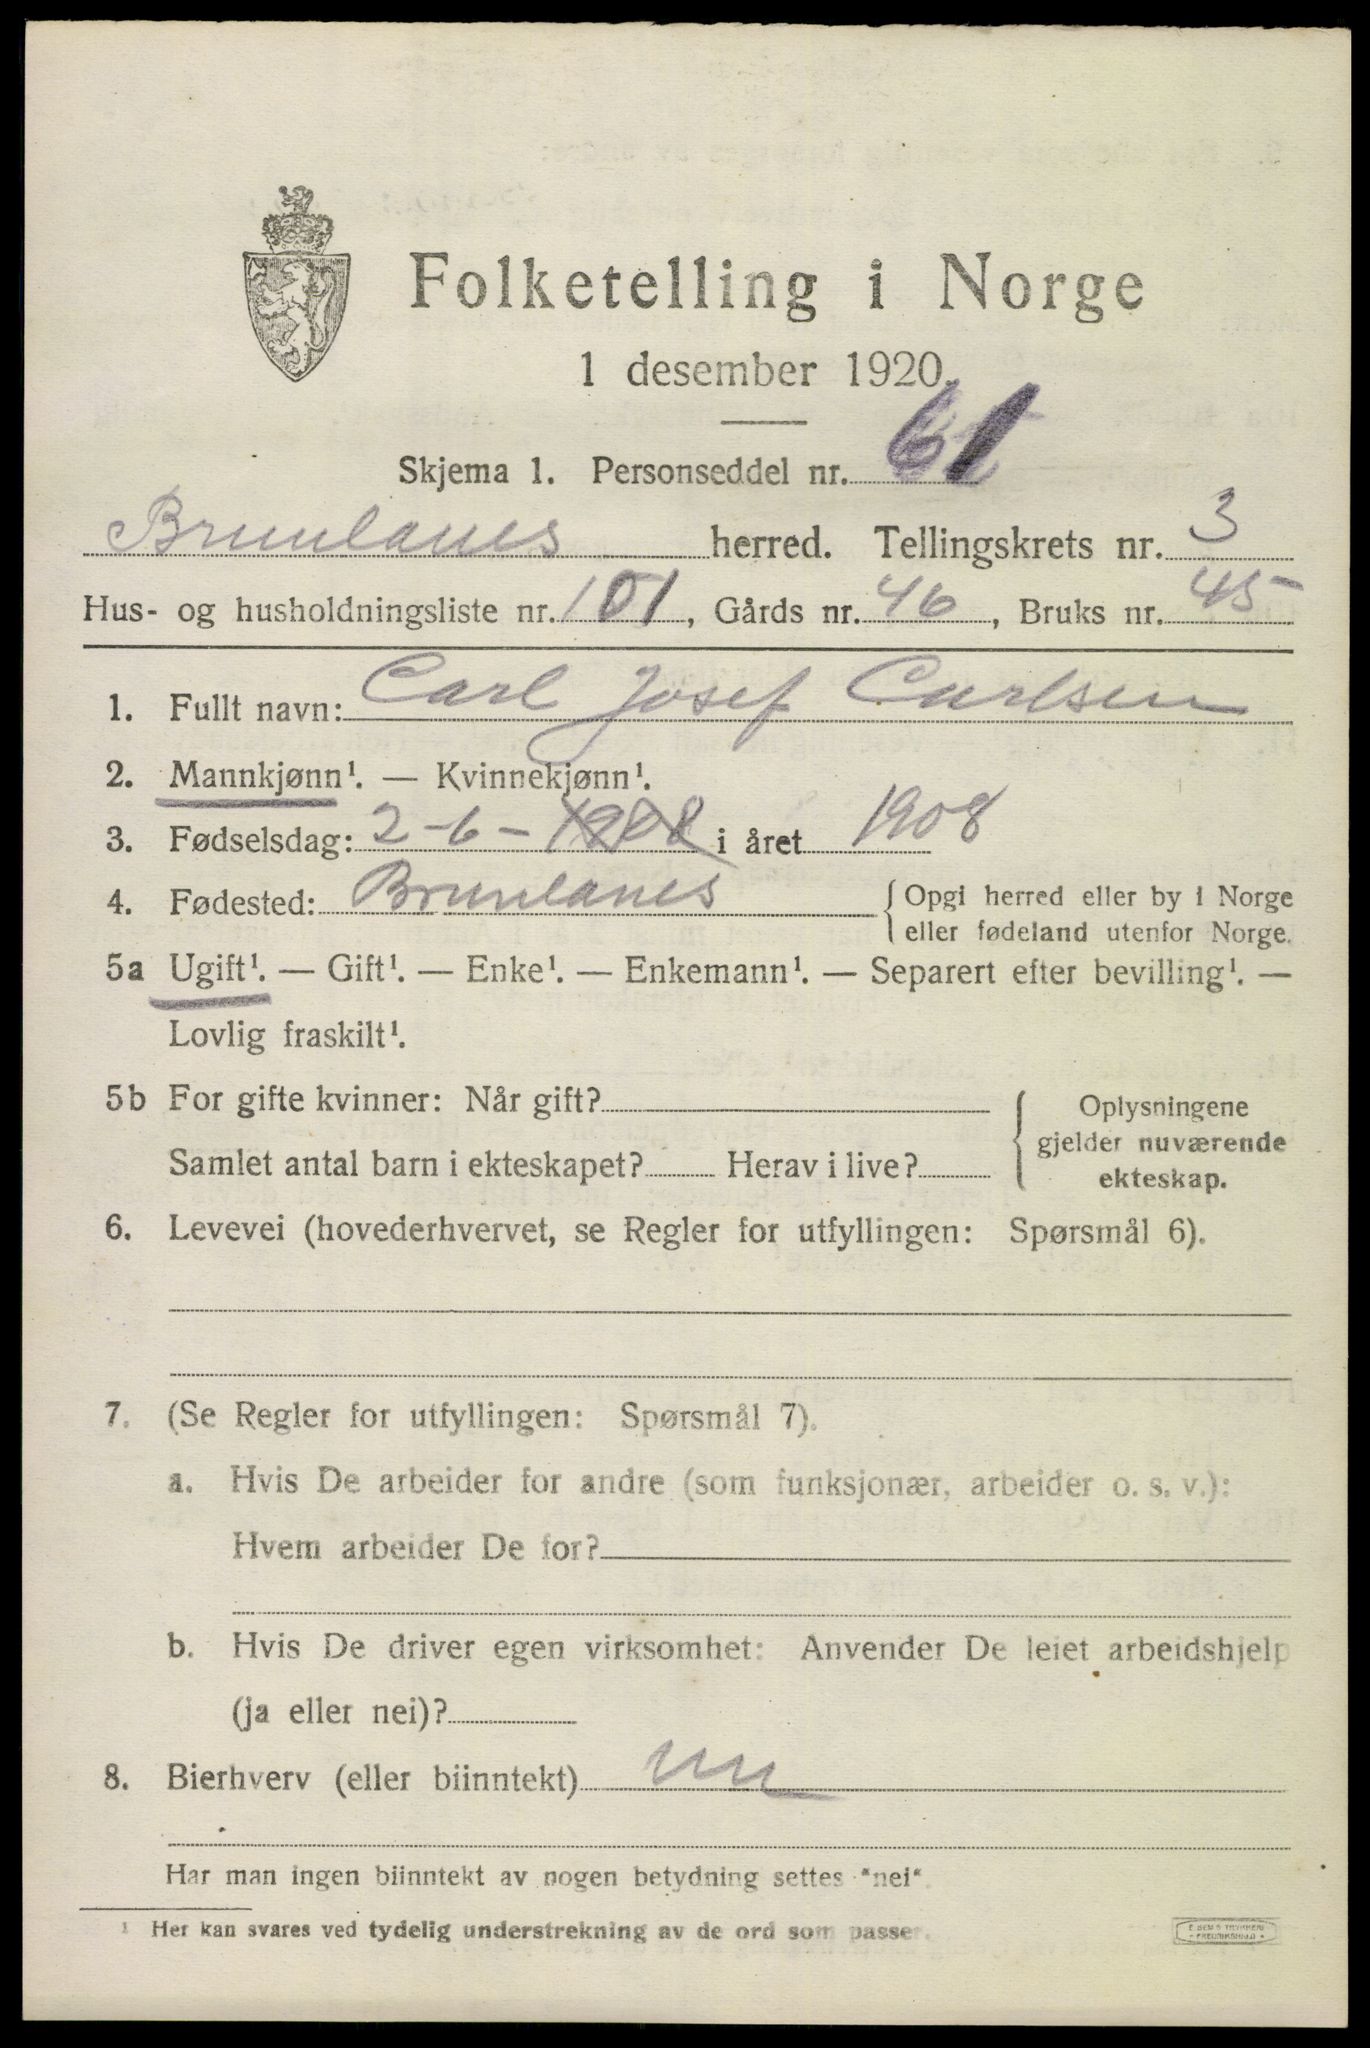 Folketelling i Norge
1 desember 1920.
Skjema 1. Personseddel nr. 61
Brunlanes herred. Tellingskrets nr. 3
Hus- og husholdningsliste nr. 101, Gårds nr. 46, Bruks nr. 45
1. Fullt navn: Carl Josef Carlsen
2. Mannkjønn¹. — Kvinnekjønn¹.
3. Fødselsdag: 2-6-1908 i året 1908
4. Fødested: Brunlanes { Opgi herred eller by i Norge
eller fødeland utenfor Norge.
5a Ugift¹. — Gift¹. — Enke¹. — Enkemann¹. — Separert efter bevilling¹. —
Lovlig fraskilt¹.
5b For gifte kvinner: Når gift?
Samlet antal barn i ekteskapet? Herav i live?
{ Oplysningene
gjelder nuværende
ekteskap.
6. Levevei (hovederhvervet, se Regler for utfyllingen: Spørsmål 6).
7. (Se Regler for utfyllingen: Spørsmål 7).
a. Hvis De arbeider for andre (som funksjonær, arbeider o. s. v.):
Hvem arbeider De for?
b. Hvis De driver egen virksomhet: Anvender De leiet arbeidshjelp
(ja eller nei)?
8. Bierhverv (eller biinntekt) nei
Har man ingen biinntekt av nogen betydning settes "nei".
¹ Her kan svares ved tydelig understrekning av de ord som passer.